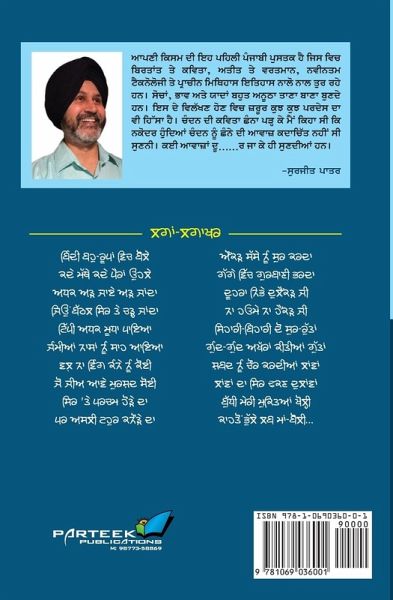 ਆਪਣੀ ਕਿਸਮ ਦੀ ਇਹ ਪਹਿਲੀ ਪੰਜਾਬੀ ਪੁਸਤਕ ਹੈ ਜਿਸ ਵਿਚ
ਬਿਰਤਾਂਤ ਤੇ ਕਵਿਤਾ, ਅਤੀਤ ਤੇ ਵਰਤਮਾਨ, ਨਵੀਨਤਮ
ਟੈਕਨੋਲੋਜੀ ਤੇ ਪ੍ਰਾਚੀਨ ਮਿਥਿਹਾਸ ਇਤਿਹਾਸ ਨਾਲੋ ਨਾਲ ਤੁਰ ਰਹੇ
ਹਨ। ਸੋਚਾਂ, ਭਾਵ ਅਤੇ ਯਾਦਾਂ ਬਹੁਤ ਅਨੂਠਾ ਤਾਣਾ ਬਾਣਾ ਬੁਣਦੇ
ਹਨ। ਇਸ ਦੇ ਵਿਲੱਖਣ ਹੋਣ ਵਿਚ ਜ਼ਰੂਰ ਕੁਝ ਕੁਝ ਪਰਦੇਸ ਦਾ
ਵੀ ਹਿੱਸਾ ਹੈ। ਚੰਦਨ ਦੀ ਕਵਿਤਾ ਛੰਨਾ ਪੜ੍ਹ ਕੇ ਮੈਂ ਕਿਹਾ ਸੀ ਕਿ
ਨਕੋਦਰ ਹੁੰਦਿਆਂ ਚੰਦਨ ਨੂੰ ਛੰਨੇ ਦੀ ਆਵਾਜ਼ ਕਦਾਚਿੱਤ ਨਹੀਂ ਸੀ
ਸੁਣਨੀ। ਕਈ ਆਵਾਜ਼ਾਂ ਦੂ......ਰ ਜਾ ਕੇ ਹੀ ਸੁਣਦੀਆਂ ਹਨ।
–ਸੁਰਜੀਤ ਪਾਤਰ
ਲਗਾਂ-ਲਗਾਖਰ
ਬਿੰਦੀ ਬਹੁ-ਰੂਪਾਂ ਵਿੱਚ ਬੋਲੇ
ਕਦੇ ਮੱਥੇ ਕਦੇ ਪੈਰਾਂ ਉਹਲੇ
ਅਧਕ ਅੜ ਜਾਏ ਅੜ ਜਾਂਦਾ
ਜਿਉਂ ਬੱਦਲ ਸਿਰ ਤੇ ਚੜ੍ਹ ਜਾਂਦਾ
ਟਿੱਪੀ ਅਧਕ ਮੂਧਾ ਪਾਇਆ
ਜੰਮੀਆਂ ਨਾਸਾਂ ਨੂੰ ਸਾਹ ਆਇਆ
ਵਲ ਨਾ ਵਿੰਗ ਕੰਨੇ ਨੂੰ ਕੋਈ
ਜੋ ਜੀਅ ਆਵੇ ਮੁਰਸ਼ਦ ਸੋਈ
ਸਿਰ 'ਤੇ ਪਰਚਮ ਹੋੜੇ ਦਾ
ਪਰ ਅਸਲੀ ਟਹੁਰ ਕਨੌੜੇ ਦਾ
ਔਂਕੜ ਸੱਸੇ ਨੂੰ ਸੁਰ ਕਰਦਾ
ਗੱਗੇ ਵਿੱਚ ਗੁਰਬਾਣੀ ਭਰਦਾ
ਦੂਹਰਾ ਨਿੱਭੇ ਦੁਲੈਂਕੜ ਜੀ
ਨਾ ਹਉਮੈ ਨਾ ਹੈਂਕੜ ਜੀ
ਸਿਹਾਰੀ-ਬਿਹਾਰੀ ਦੋ ਸੁਰ-ਰੁੱਤਾਂ
ਗੁੰਦ-ਗੁੰਦ ਅੱਖਰਾਂ ਕੀਤੀਆਂ ਗੁੱਤਾਂ
ਸ਼ਬਦ ਨੂੰ ਚੌਰ ਕਰਦੀਆਂ ਲਾਂਵਾਂ
ਲਾਂਵਾਂ ਦਾ ਸਿਰ ਢਕਣ ਦੁਲਾਵਾਂ
ਬੁੱਧੀ ਮੇਰੀ ਮੁਕਤਿਆਂ ਖੋਲ੍ਹੀ
ਕਾਹਤੋਂ ਭੁੱਲੇ ਲਬ ਮਾਂ-ਬੋਲੀ...
PARTEEK
PUBLICATIONS
M: 98773-58869
ISBN 978-1-0690360-0-1
90000
9 781069 036001